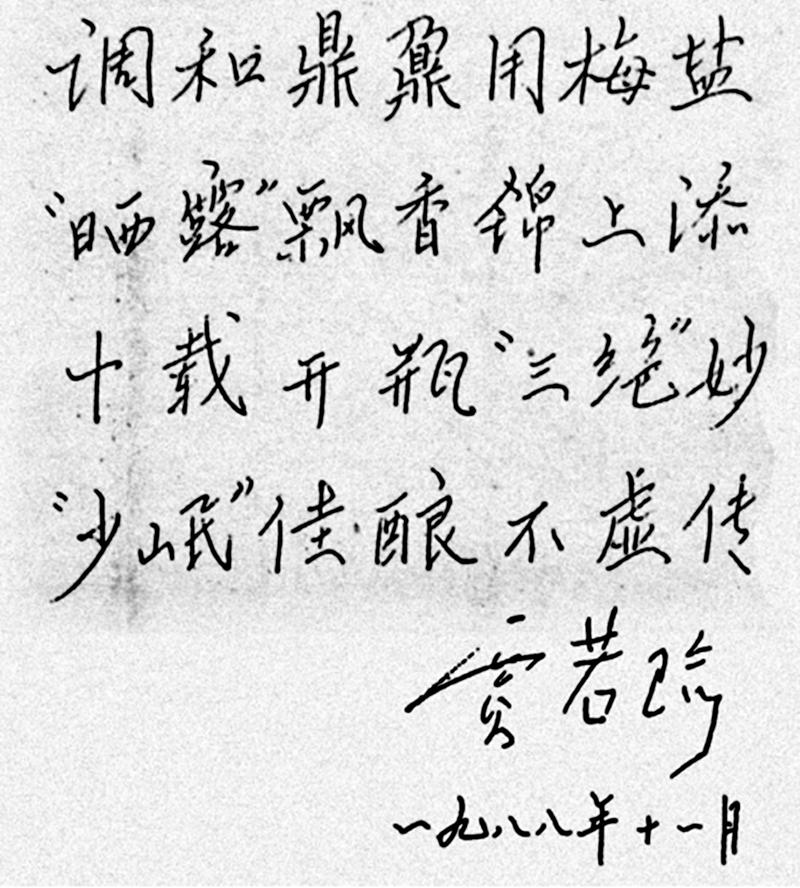 调和鼎鼐用梅盐
“晒露”飘香锦上添
十载开瓶“三绝”妙
“少岷”佳酿不虚传
贾若瑜
一九八八年十一月